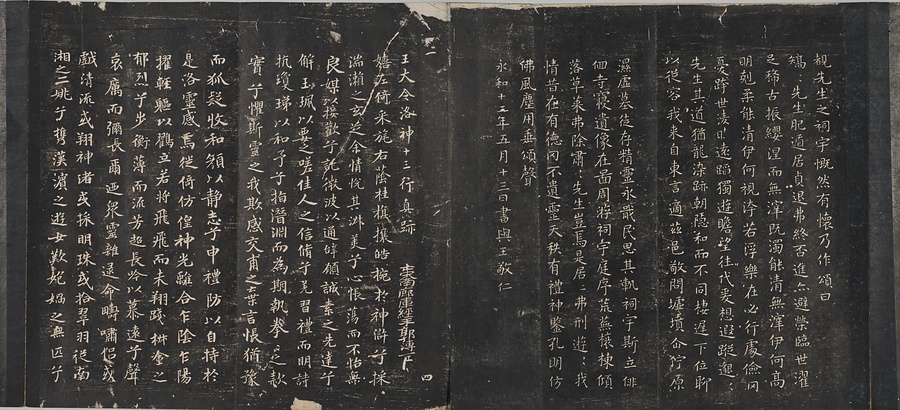 覩先生之祠宇慨然有懷乃作頌曰
矯:先生肥遁居貞退弗終否進亦避榮臨世濯
足稀古振纓涅而無滓既濁能清無滓伊何高
明剋柔能清伊何視汙若浮樂在必行處儉罔
憂跨世淩時遠蹈獨遊瞻望往代爰想遐蹤邈:
先生其道猶龍染跡朝隱和而不同棲遲下位聊
以從容我來自東言適茲邑敬問墟墳企佇原
隰墟墓徒存精靈永戢民思其軌祠宇斯立俳
佪寺寢遺像在啚周旋祠宇庭序荒蕪榱棟傾
落草萊弗除肅:先生豈焉是居:弗刑遊:我
情昔在有德罔不遺靈天秩有禮神鑒孔明仿
佛風塵用垂頌聲
永和十二年五月十三日書與王敬仁
二
四
王大令洛神十三行真跡
嬉左倚采旄右蔭桂旗攘皓捥於神滸兮採
湍瀨之玄芝余情悅其淑美兮心振蕩而不怡無
良媒以接歡兮託微波以通辭願誠素之先達兮
解玉珮以要之嗟佳人之信脩兮羌習禮而明詩
抗瓊珶以和予兮指潛淵而為期執拳:之款
實兮懼斯靈之我欺感交甫之棄言悵猶豫
而狐疑收和顏以靜志兮申禮防以自持於
是洛靈感焉徙倚仿偟神光離合乍陰乍陽
擢輕軀以鶴立若將飛飛而未翔踐椒塗之
郁烈兮步衡薄而流芳超長吟以慕遠兮聲
哀厲而彌長爾乃眾靈雜遝命疇嘯侶或
戲清流或翔神渚或採明珠或拾翠羽從南
湘之二姚兮攜漢濱之遊女歎匏媧之無匹兮